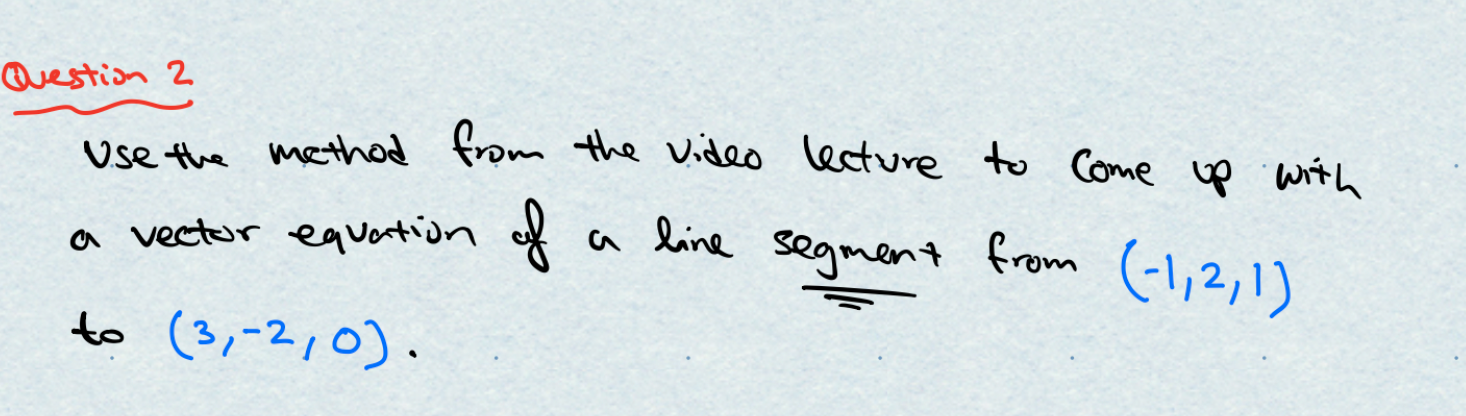 Question 2
Use the method from the video lecture to come up with
a vector equation of a line segment from (-1,2,1)
to (3,-2,0).